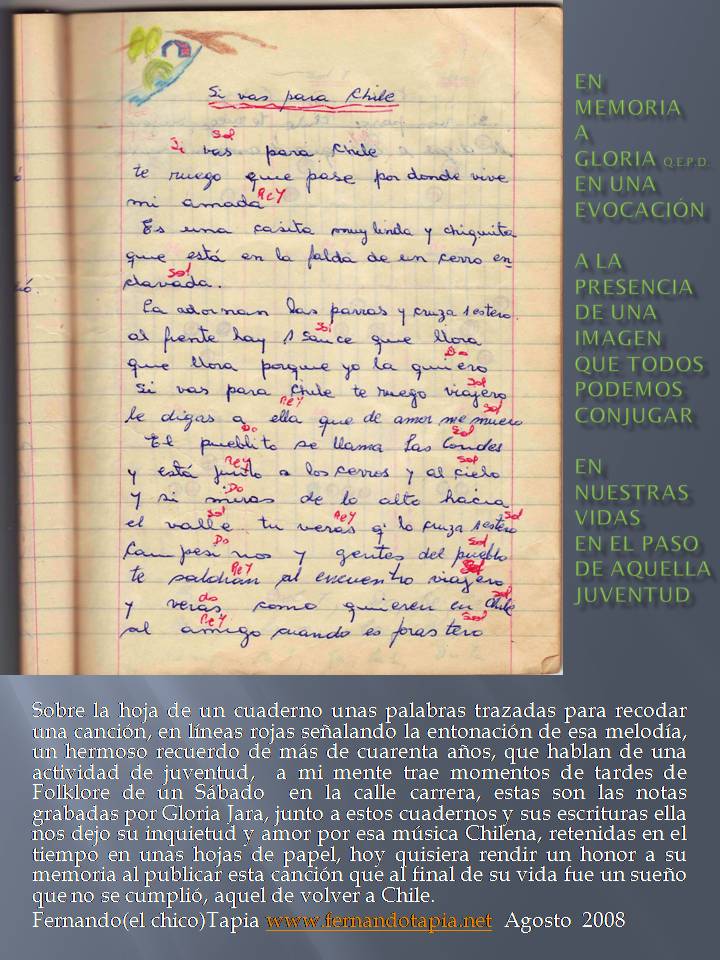 Si vas para Chile
Sol
Si vas para Chile
te ruego que pase por donde vive
Re7
mi amada
Es una casita muy linda y chiquita
que está en la falda de un cerro en=
Sol
clavada.
La adornan las parras y cruza 1 estero.
Sol
al frente hay 1 sauce que llora
Do
que llora porque yo la quiero
Sol
Si vas para Chile te ruego viajero
Re7 Sol
le digas a ella que de amor me muero
Do Sol
El pueblito se llama Las Condes
Re7 Sol
y está junto a los cerros y al cielo
Do
y si miras de lo alto hacia
Sol Re7 Sol
el valle tu veras q' lo cruza 1 estero
Do Sol
Campesinos y gentes del pueblo
Re7 Sol
te saldran al encuentro viajero
do Sol
y verás como quieren en Chile
Re7 Sol
al amigo cuando es forastero
EN
MEMORIA
A
GLORIA Q.E.P.D.
EN UNA
EVOCACIÓN
A LA
PRESENCIA
DE UNA
IMAGEN
QUE TODOS
PODEMOS
CONJUGAR
EN
NUESTRAS
VIDAS
EN EL PASO
DE AQUELLA
JUVENTUD
Sobre la hoja de un cuaderno unas palabras trazadas para recodar
una canción, en líneas rojas señalando la entonación de esa melodía,
un hermoso recuerdo de más de cuarenta años, que hablan de una
actividad de juventud, a mi mente trae momentos de tardes de
Folklore de un Sábado en la calle carrera, estas son las notas
grabadas por Gloria Jara, junto a estos cuadernos y sus escrituras ella
nos dejo su inquietud y amor por esa música Chilena, retenidas en el
tiempo en unas hojas de papel, hoy quisiera rendir un honor a su
memoria al publicar esta canción que al final de su vida fue un sueño
que no se cumplió, aquel de volver a Chile.
Fernando(el chico)Tapia www.fernandotapia.net Agosto 2008